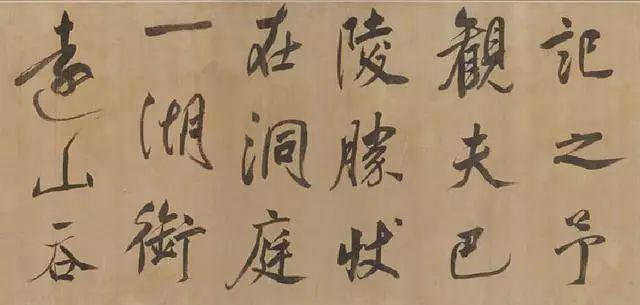 記之予
觀夫巴
陵勝狀
在洞庭
一湖銜
遠山吞